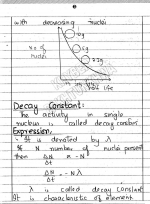 with decreasing nuclei
no. of
nuclei
half life
Decay Constant:
The activity in single
nucleus is called decay constant.
Expression.
It is denoted by λ
If N number of nuclei present
then ΔN ∝ -N
Δt
ΔN = -Nλ
Δt
λ is called decay constant
It is characteristic of element